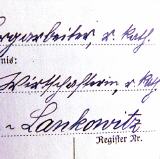 rgarbeiter, r. kath.
nis:
Wirtschafterin, r. kath
Lankowitz
Register Nr.